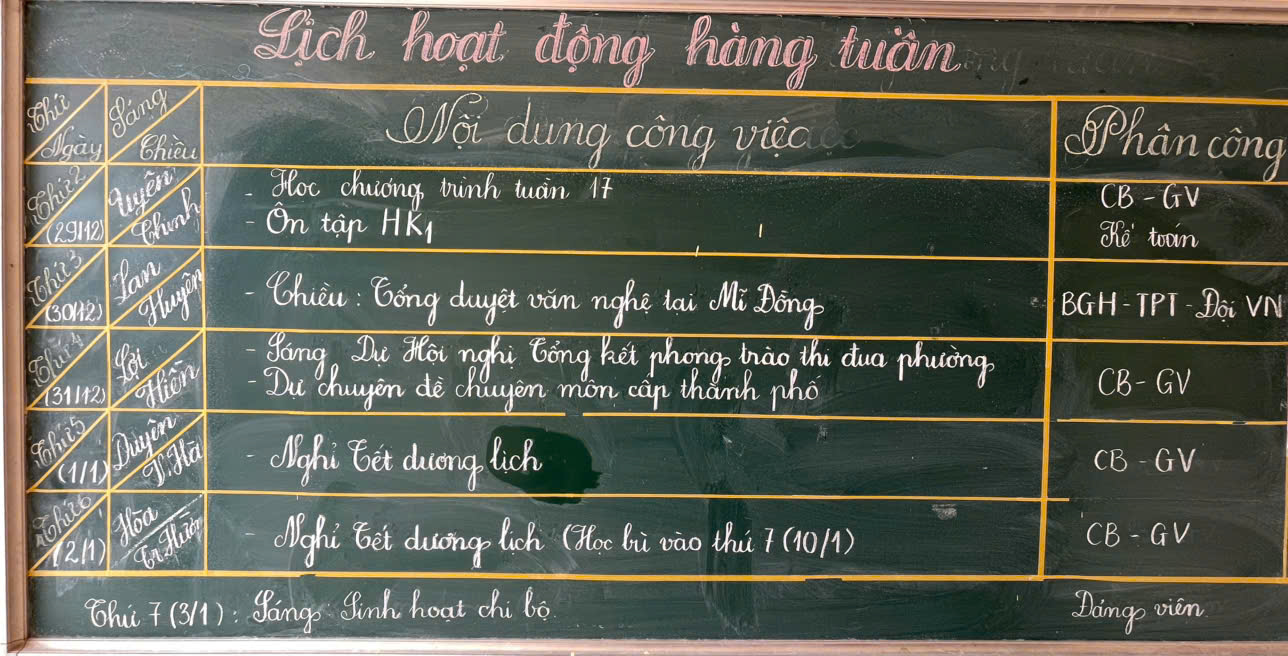 Lịch hoạt động hàng tuần
Thứ Ngày Sáng Chiều Nội dung công việc Phân công
Thứ 2 (29/12) Uyên Chinh - Học chương trình tuần 17 CB - GV
- Ôn tập HK1 Kế toán
Thứ 3 (30/12) Lan Huyện - Chiều: Tổng duyệt văn nghệ tại Mĩ Đồng BGH - TPT - Đội VN
Thứ 4 (31/12) Lợi Hiền - Sáng Dự Hội nghị Tổng kết phong trào thi đua phường
- Dự chuyên đề chuyên môn cấp thành phố CB - GV
Thứ 5 (1/1) Duyên V.Hà - Nghỉ Tết dương lịch CB - GV
Thứ 6 (2/1) Hòa - Nghỉ Tết dương lịch (Học bù vào thứ 7 (10/1) CB - GV
Thứ 7 (3/1): Sáng: Sinh hoạt chi bộ. Đảng viên.